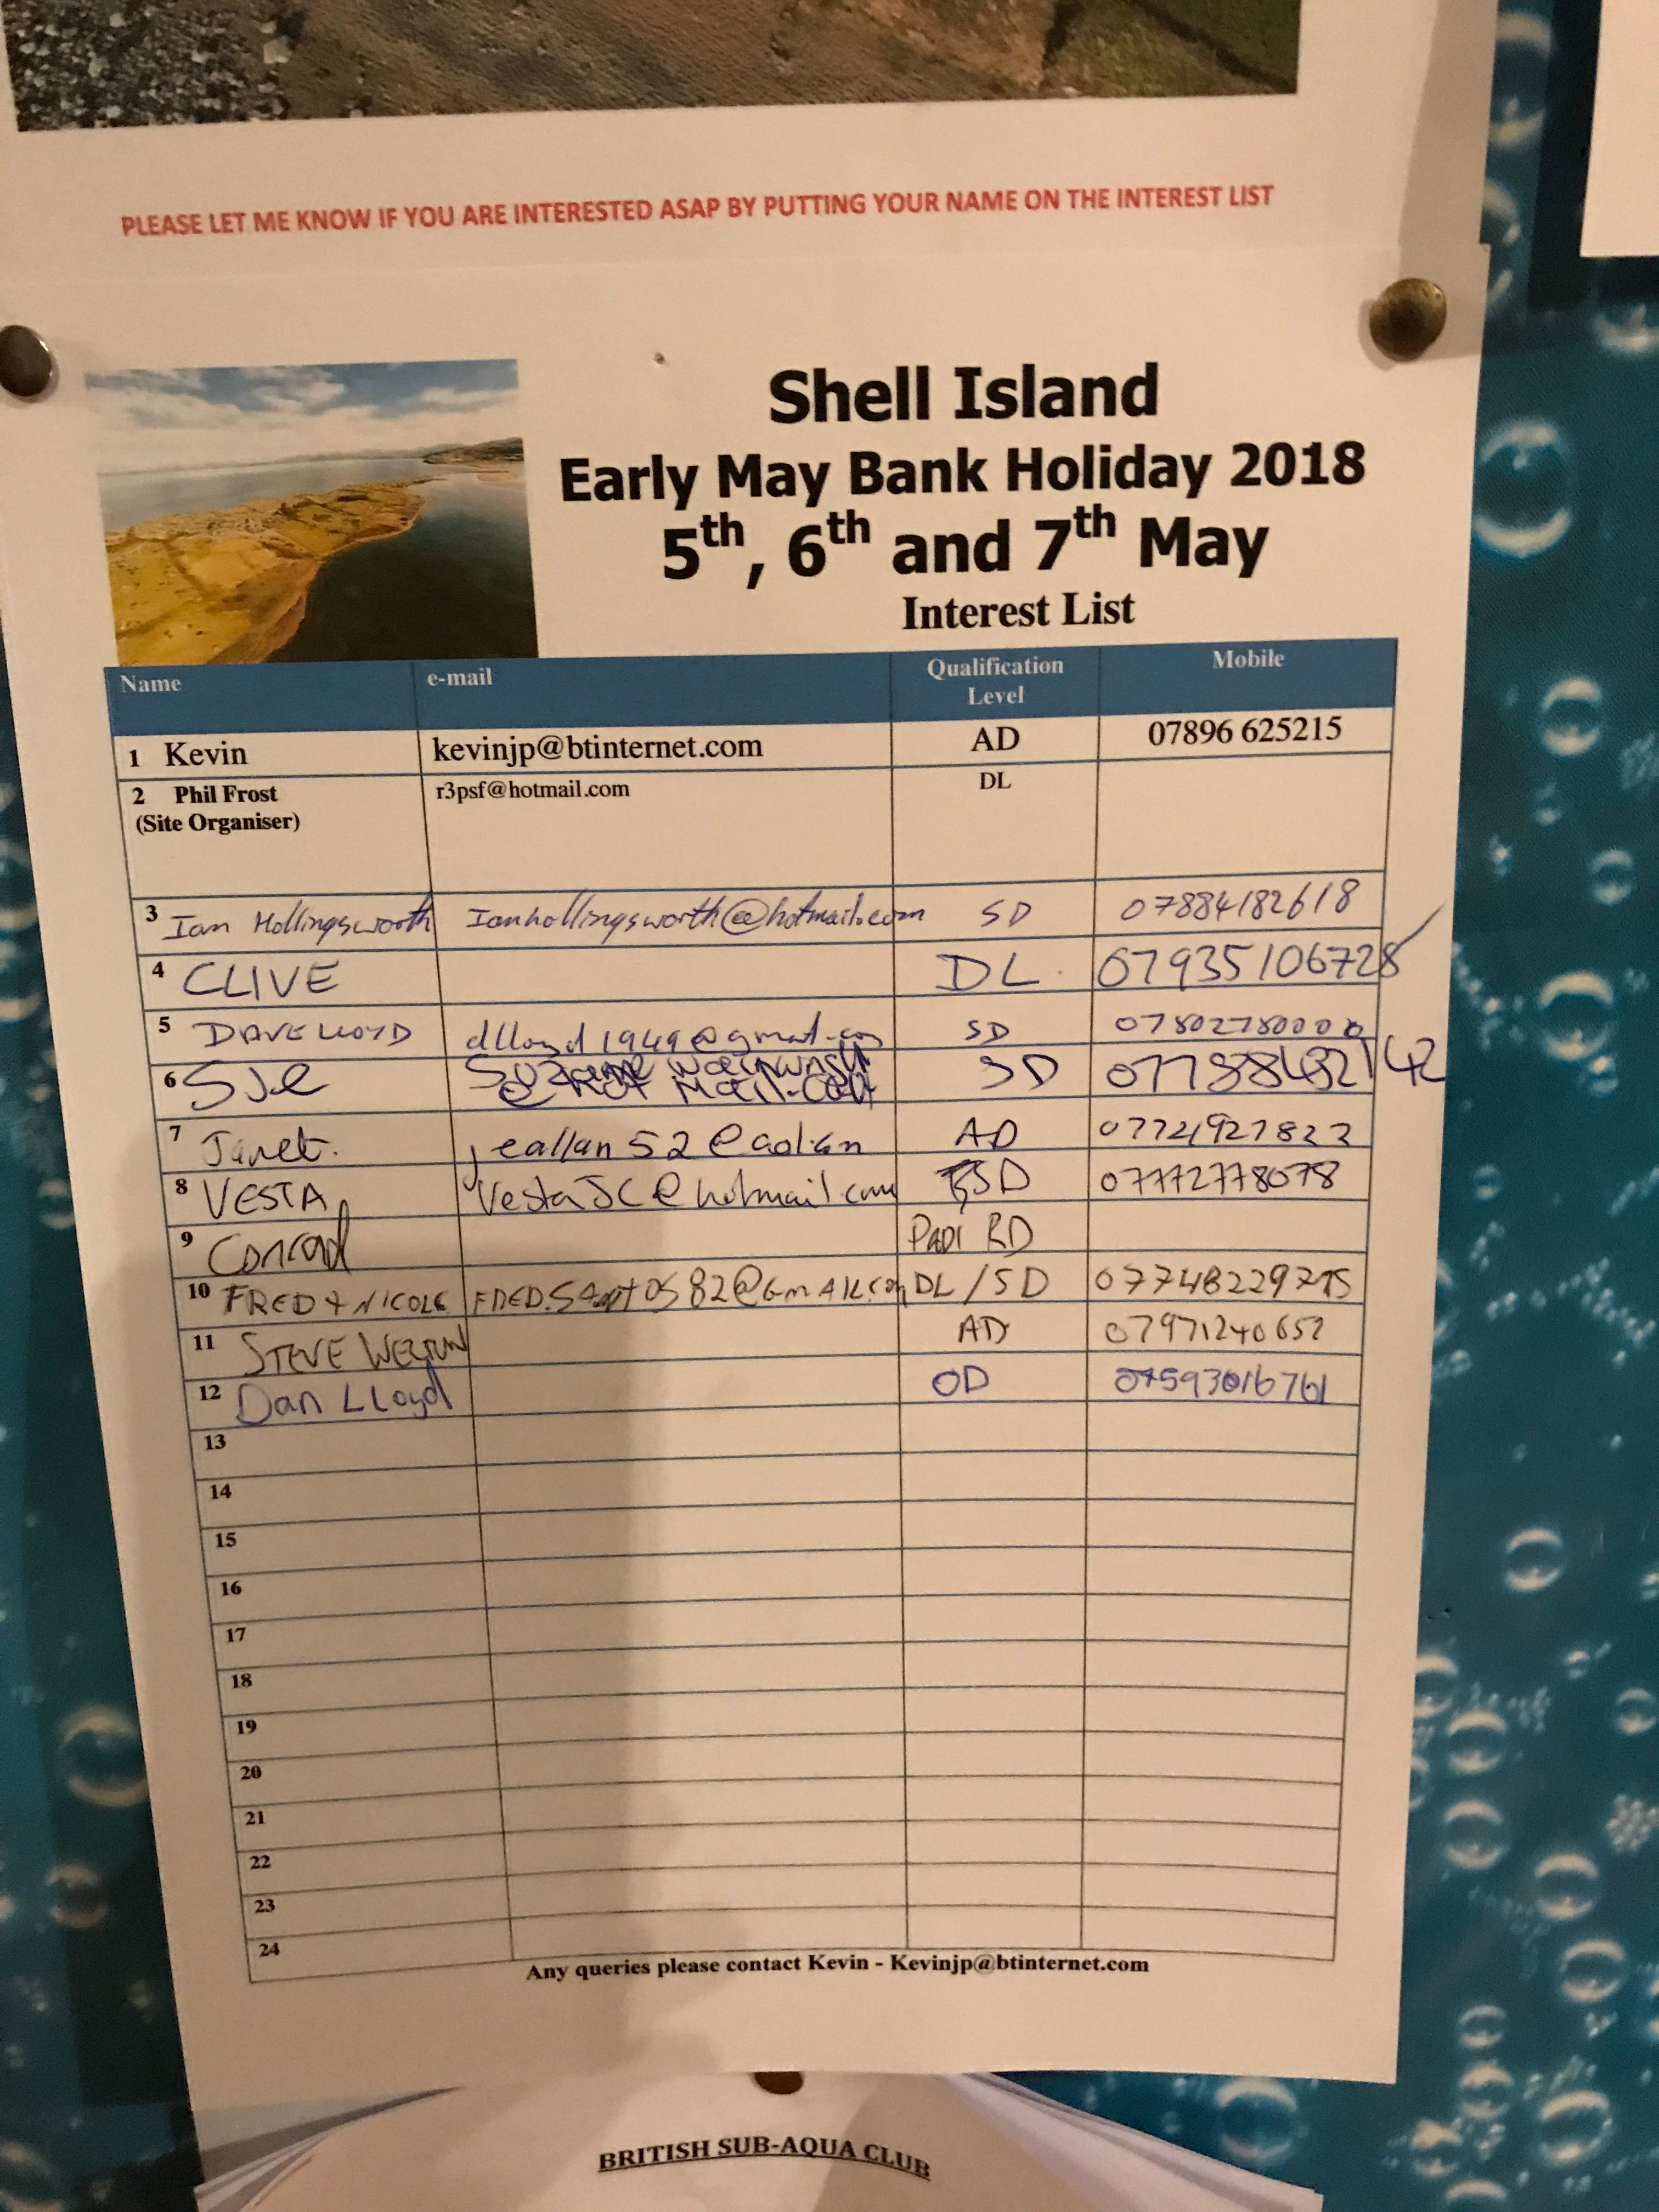 PLEASE LET ME KNOW IF YOU ARE INTERESTED ASAP BY PUTTING YOUR NAME ON THE INTEREST LIST
Shell Island
Early May Bank Holiday 2018
5th, 6th and 7th May
Interest List
Name e-mail Qualification Level Mobile
1 Kevin kevinjp@btinternet.com AD 07896 625215
2 Phil Frost r3psf@hotmail.com DL
(Site Organiser)
3 Ian Hollingsworth Ianhollingsworth@hotmail.com SD 07884182618
4 CLIVE DL 07935106728
5 DAVE LLOYD dlloyd1949@gmail.com SD
6 Sue SD
@HOTMAIL.COM
7 Janet. jeallan52@aol.com AD 07721927822
8 VESTA VestaJC@hotmail.com SD 07772778078
9 Conrad PADI RD
10 FRED + NICOLE DL/SD 07748229715
11 STEVE AD 07971240652
12 Dan Lloyd OD 07593016761
13
14
15
16
17
18
19
20
21
22
23
24
Any queries please contact Kevin - Kevinjp@btinternet.com
BRITISH SUB-AQUA CLUB